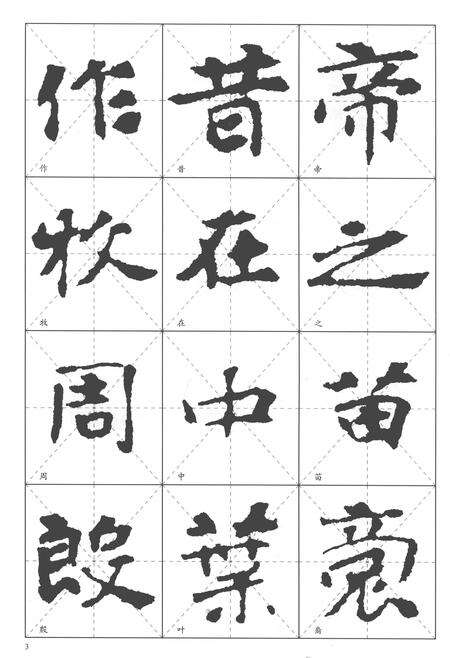 帝之苗裔
昔在中葉
作牧周殷
帝
之
苗
裔
昔
在
中
叶
作
牧
周
殷
3